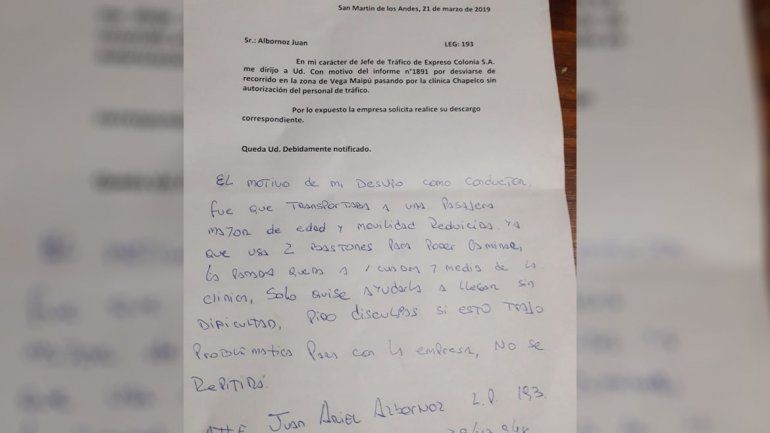 San Martín de los Andes, 21 de marzo de 2019
Sr.: Albornoz Juan LEG: 193
En mi carácter de Jefe de Tráfico de Expreso Colonia S.A.
me dirijo a Ud. Con motivo del informe n°1891 por desviarse de
recorrido en la zona de Vega Maipú pasando por la clínica Chapelco sin
autorización del personal de tráfico.
Por lo expuesto la empresa solicita realice su descargo
correspondiente.
Queda Ud. Debidamente notificado.
EL MOTIVO DE MI DESVIO COMO CONDUCTOR,
fue QUE TRANSPORTABA A UNA PASAJERA
MAYOR DE EDAD Y MOVILIDAD REDUCIDA, YA
QUE USA 2 BASTONES PARA PODER CAMINAR,
LA PARADA QUEDA A 1 CUADRA Y MEDIA DE LA
CLINICA, SOLO QUISE AYUDARLA A LLEGAR SIN
DIFICULTAD, PIDO DISCULPAS SI ESTO TRAJO
PROBLEMATICA PARA CON LA EMPRESA, NO SE
REPITIRÁ.
ATTE JUAN ARIEL ALBORNOZ L.P. 193